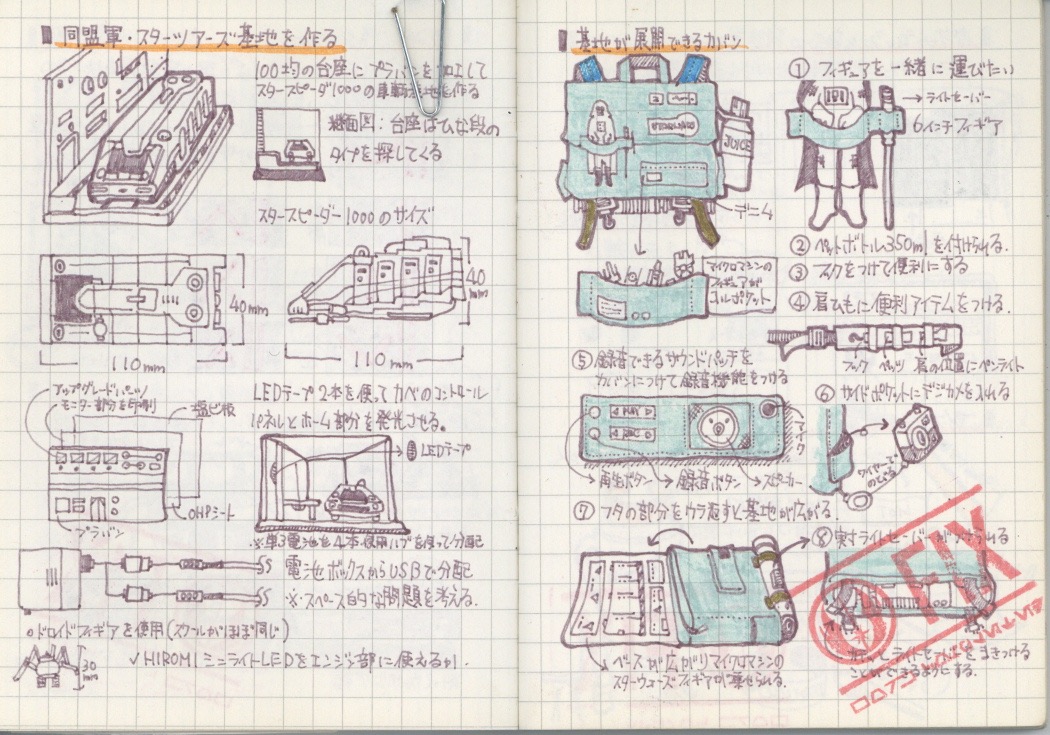 同盟軍・スターツアーズ基地を作る
100均の台座にプラバンを加工して
スタースピーダ1000の車輌基地を作る
縦面図:台座はひな段の
タイプを探してくる
スタースピーダー1000のサイズ
40mm
40mm
110mm
110mm
アップグレードパーツ
モニター部分を印刷
塩ビ板
OHPシート
プラバン
LEDテープ2本を使ってカベのコントロール
パネルとホーム部分を発光させる。
LEDテープ
※単3電池を4本使用ハブを使って分配
電池ボックスからUSBで分配
※スペース的な問題を考える.
○ドロイドフィギアを使用(スケールがほぼ同じ)
30mm
✓HIROMIミニライトLEDをエンジン部に使えるか.
基地が展開できるカバン
JUICE
デニム
マイクロマシンの
フィギュアが
入るポケット
① フィギュアを一緒に運びたい
→ライトセーバー
6インチフィギア
② ペットボトル350mlを付けられる.
③ フックをつけて便利にする
④ 肩ひもに便利アイテムをつける.
フック
肩の位置にペンライト
⑤ 録音できるサウンドパッチを
カバンにつけて録音機能をつける
PLAY
REC
マイク
再生ボタン
録音ボタン
スピーカー
⑥ サイドポケットにデジカメを入れる
ワイヤーで
のびる
⑦ フタの部分をウラ返すと基地が広がる
ベースが広がりマイクロマシンの
スターウォーズフィギアが乗せられる.
⑧ 実寸ライトセーバーがつけられる
FIX
ライトセーバーをまきつける
ことができるようにする.